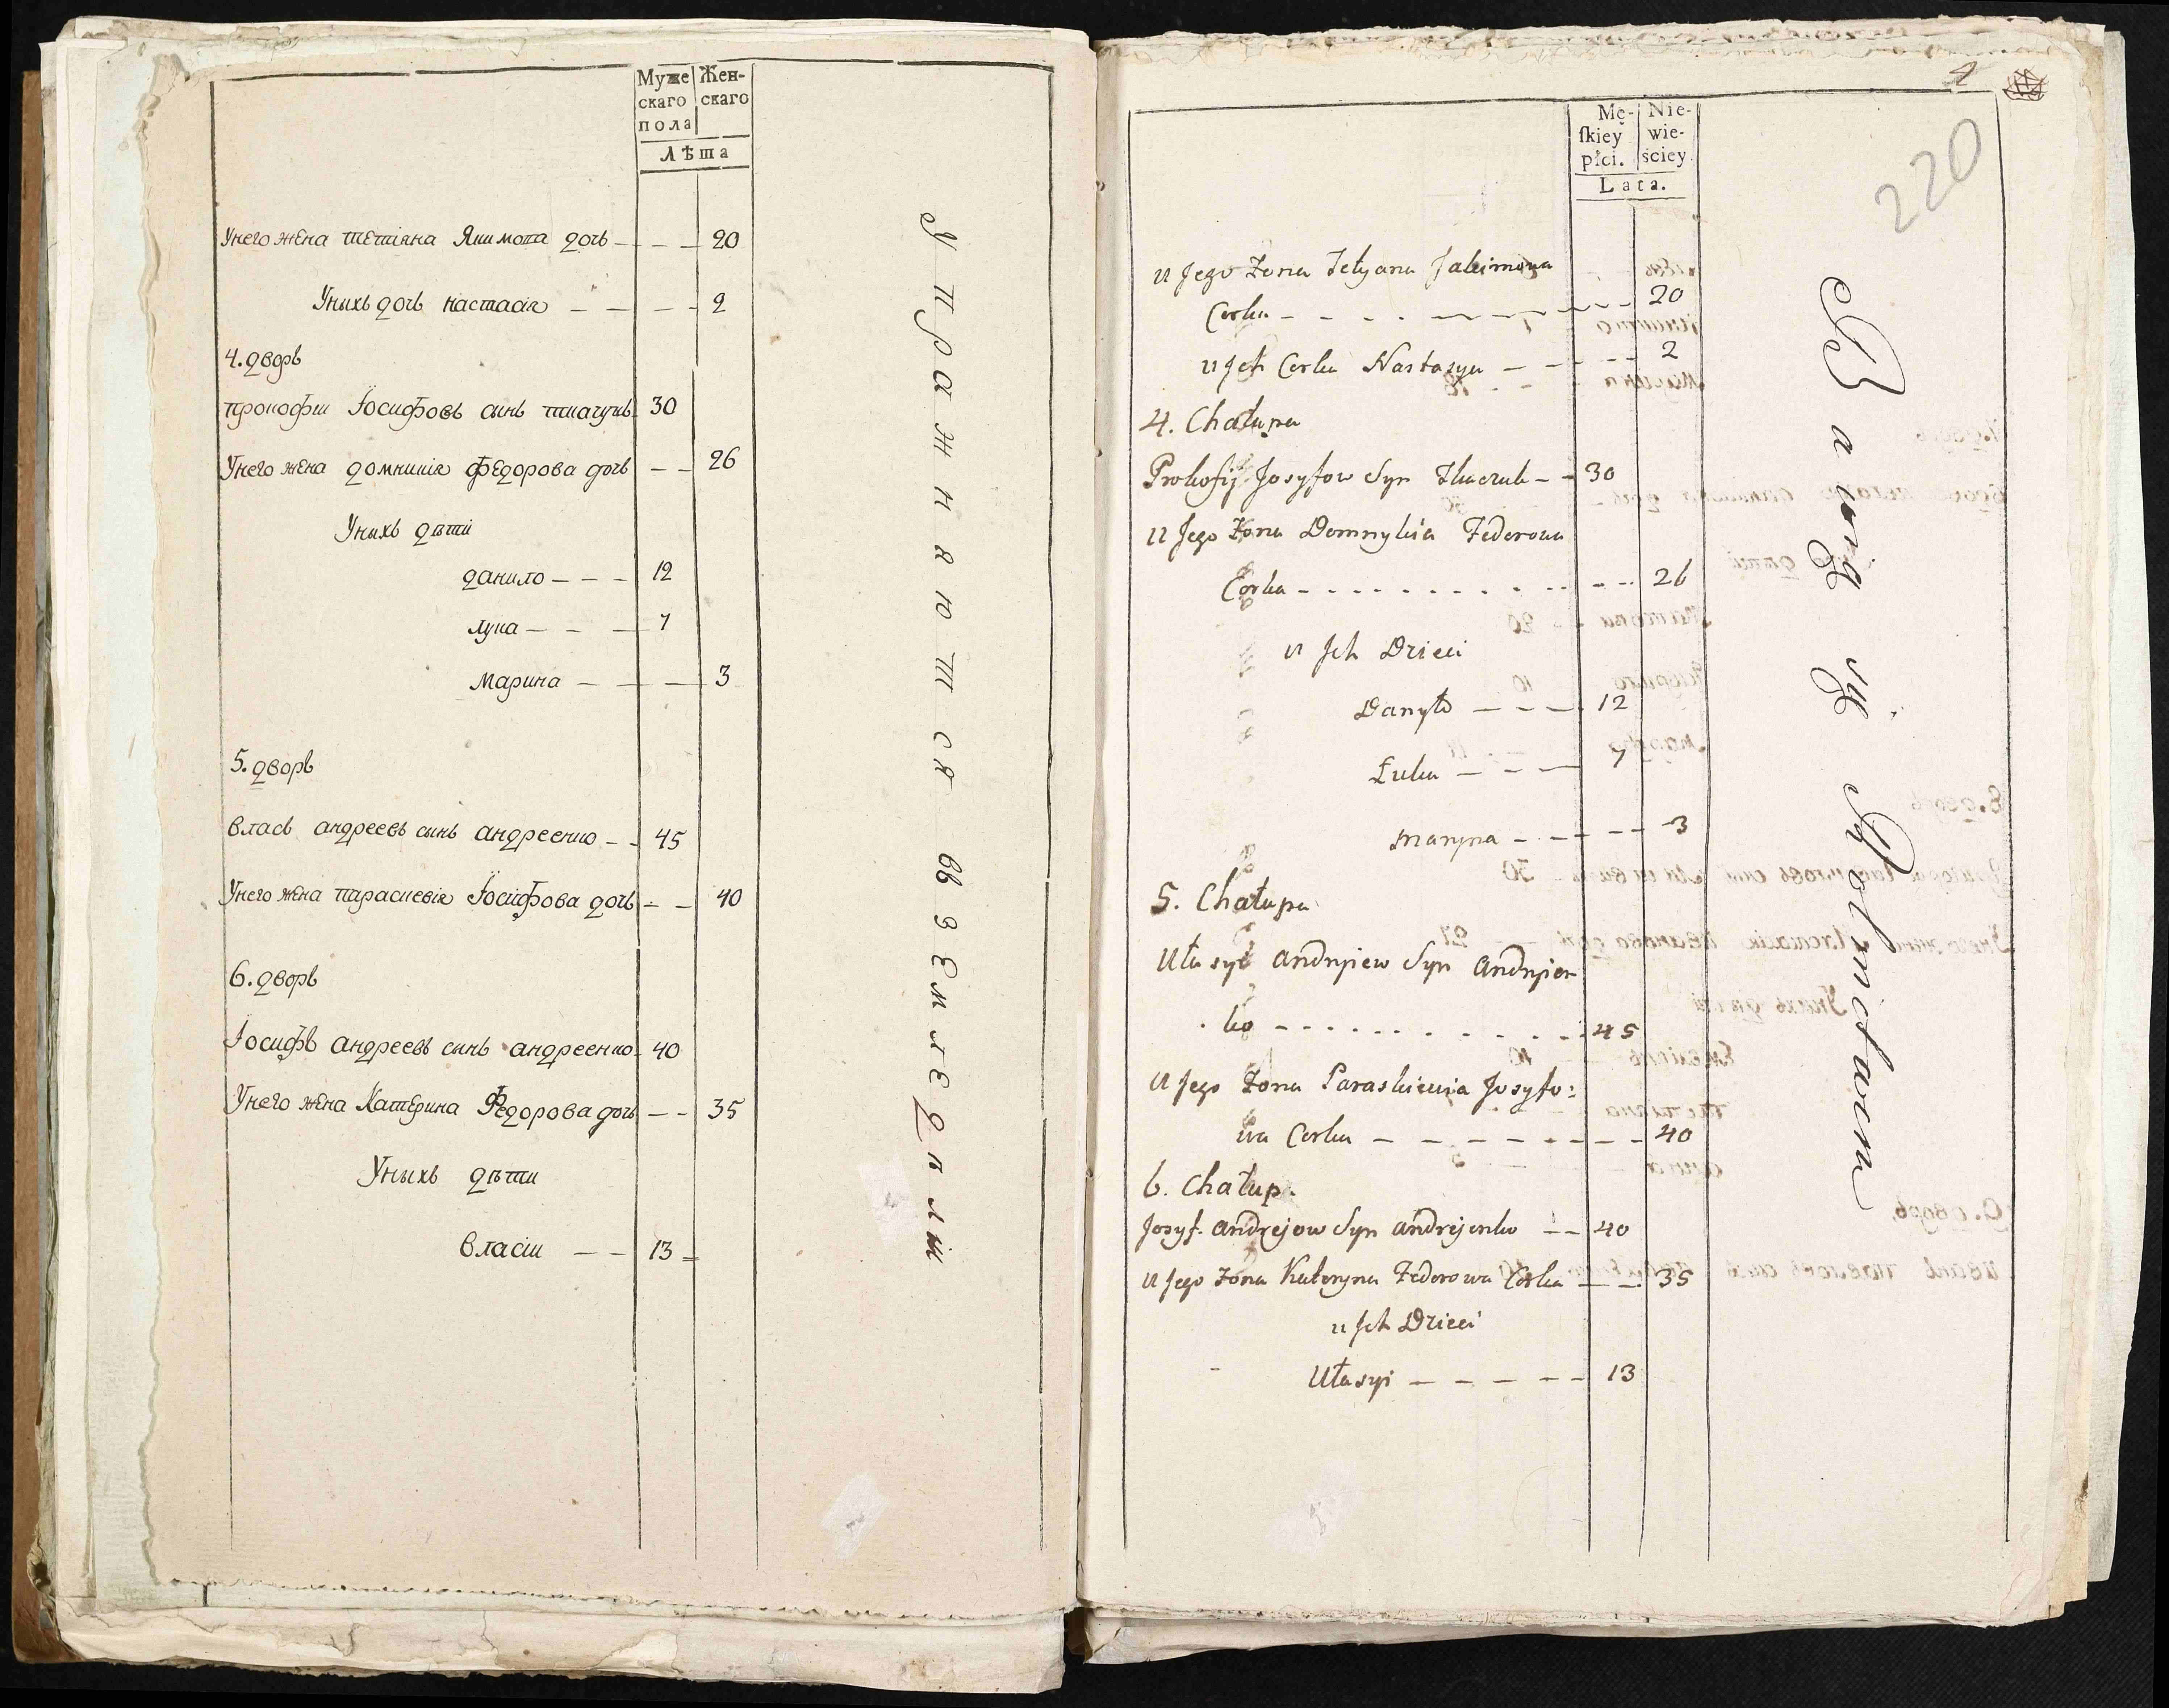 Муже Жен-
скаго скаго
пола
Лѣта
Унего жена тетіяна Якимова дочь — — — 20
Унихъ дочь настасія — — — 2
4. дворъ
прокофіи Іосифовъ сынъ ткачукъ 30
Унего жена домникія федорова дочь — — 26
Унихъ дѣти
данило — — — 12
лука — — — 7
марина — — — 3
5. дворъ
власъ андреевъ сынъ андреенко — — 45
Унего жена параскевія Іосифова дочь — — 40
6. дворъ
Іосифъ андреевъ сынъ андреенко 40
Унего жена Катерина Федорова дочь — — 35
Унихъ дѣти
власіи — — 13
Упражняются въ земледѣліи
4
220
Mę- Nie-
ſkiey wie-
płci. ściey
Lata.
u Jego Żona Tetyana Jakimowa
Corka - - - - - - - 20
u Jch Corka Nastasya - - - - 2
4. Chałupa
Prokofij Josyfow Syn Tkaczuk - - 30
u Jego Żona Domnykia Federowa
Corka - - - - - - - - - - 26
u Jch Dzieci
Danyło - - - - 12
Łuka - - - 7
Maryna - - - - - 3
5. Chałupa
Ułasyi Andryiew Syn Andryien
ko - - - - - - - - - - 45
u Jego Żona Paraskiewia Josyfo:
wa Corka - - - - - - - - 40
6. Chałup.
Josyf. Andrejow Syn Andrejenko - - 40
u Jego Żona Kateryna Federowa Corka - - 35
u Jch Dzieci
Ułasyi - - - - - 13
Bawią się Rolnictwem